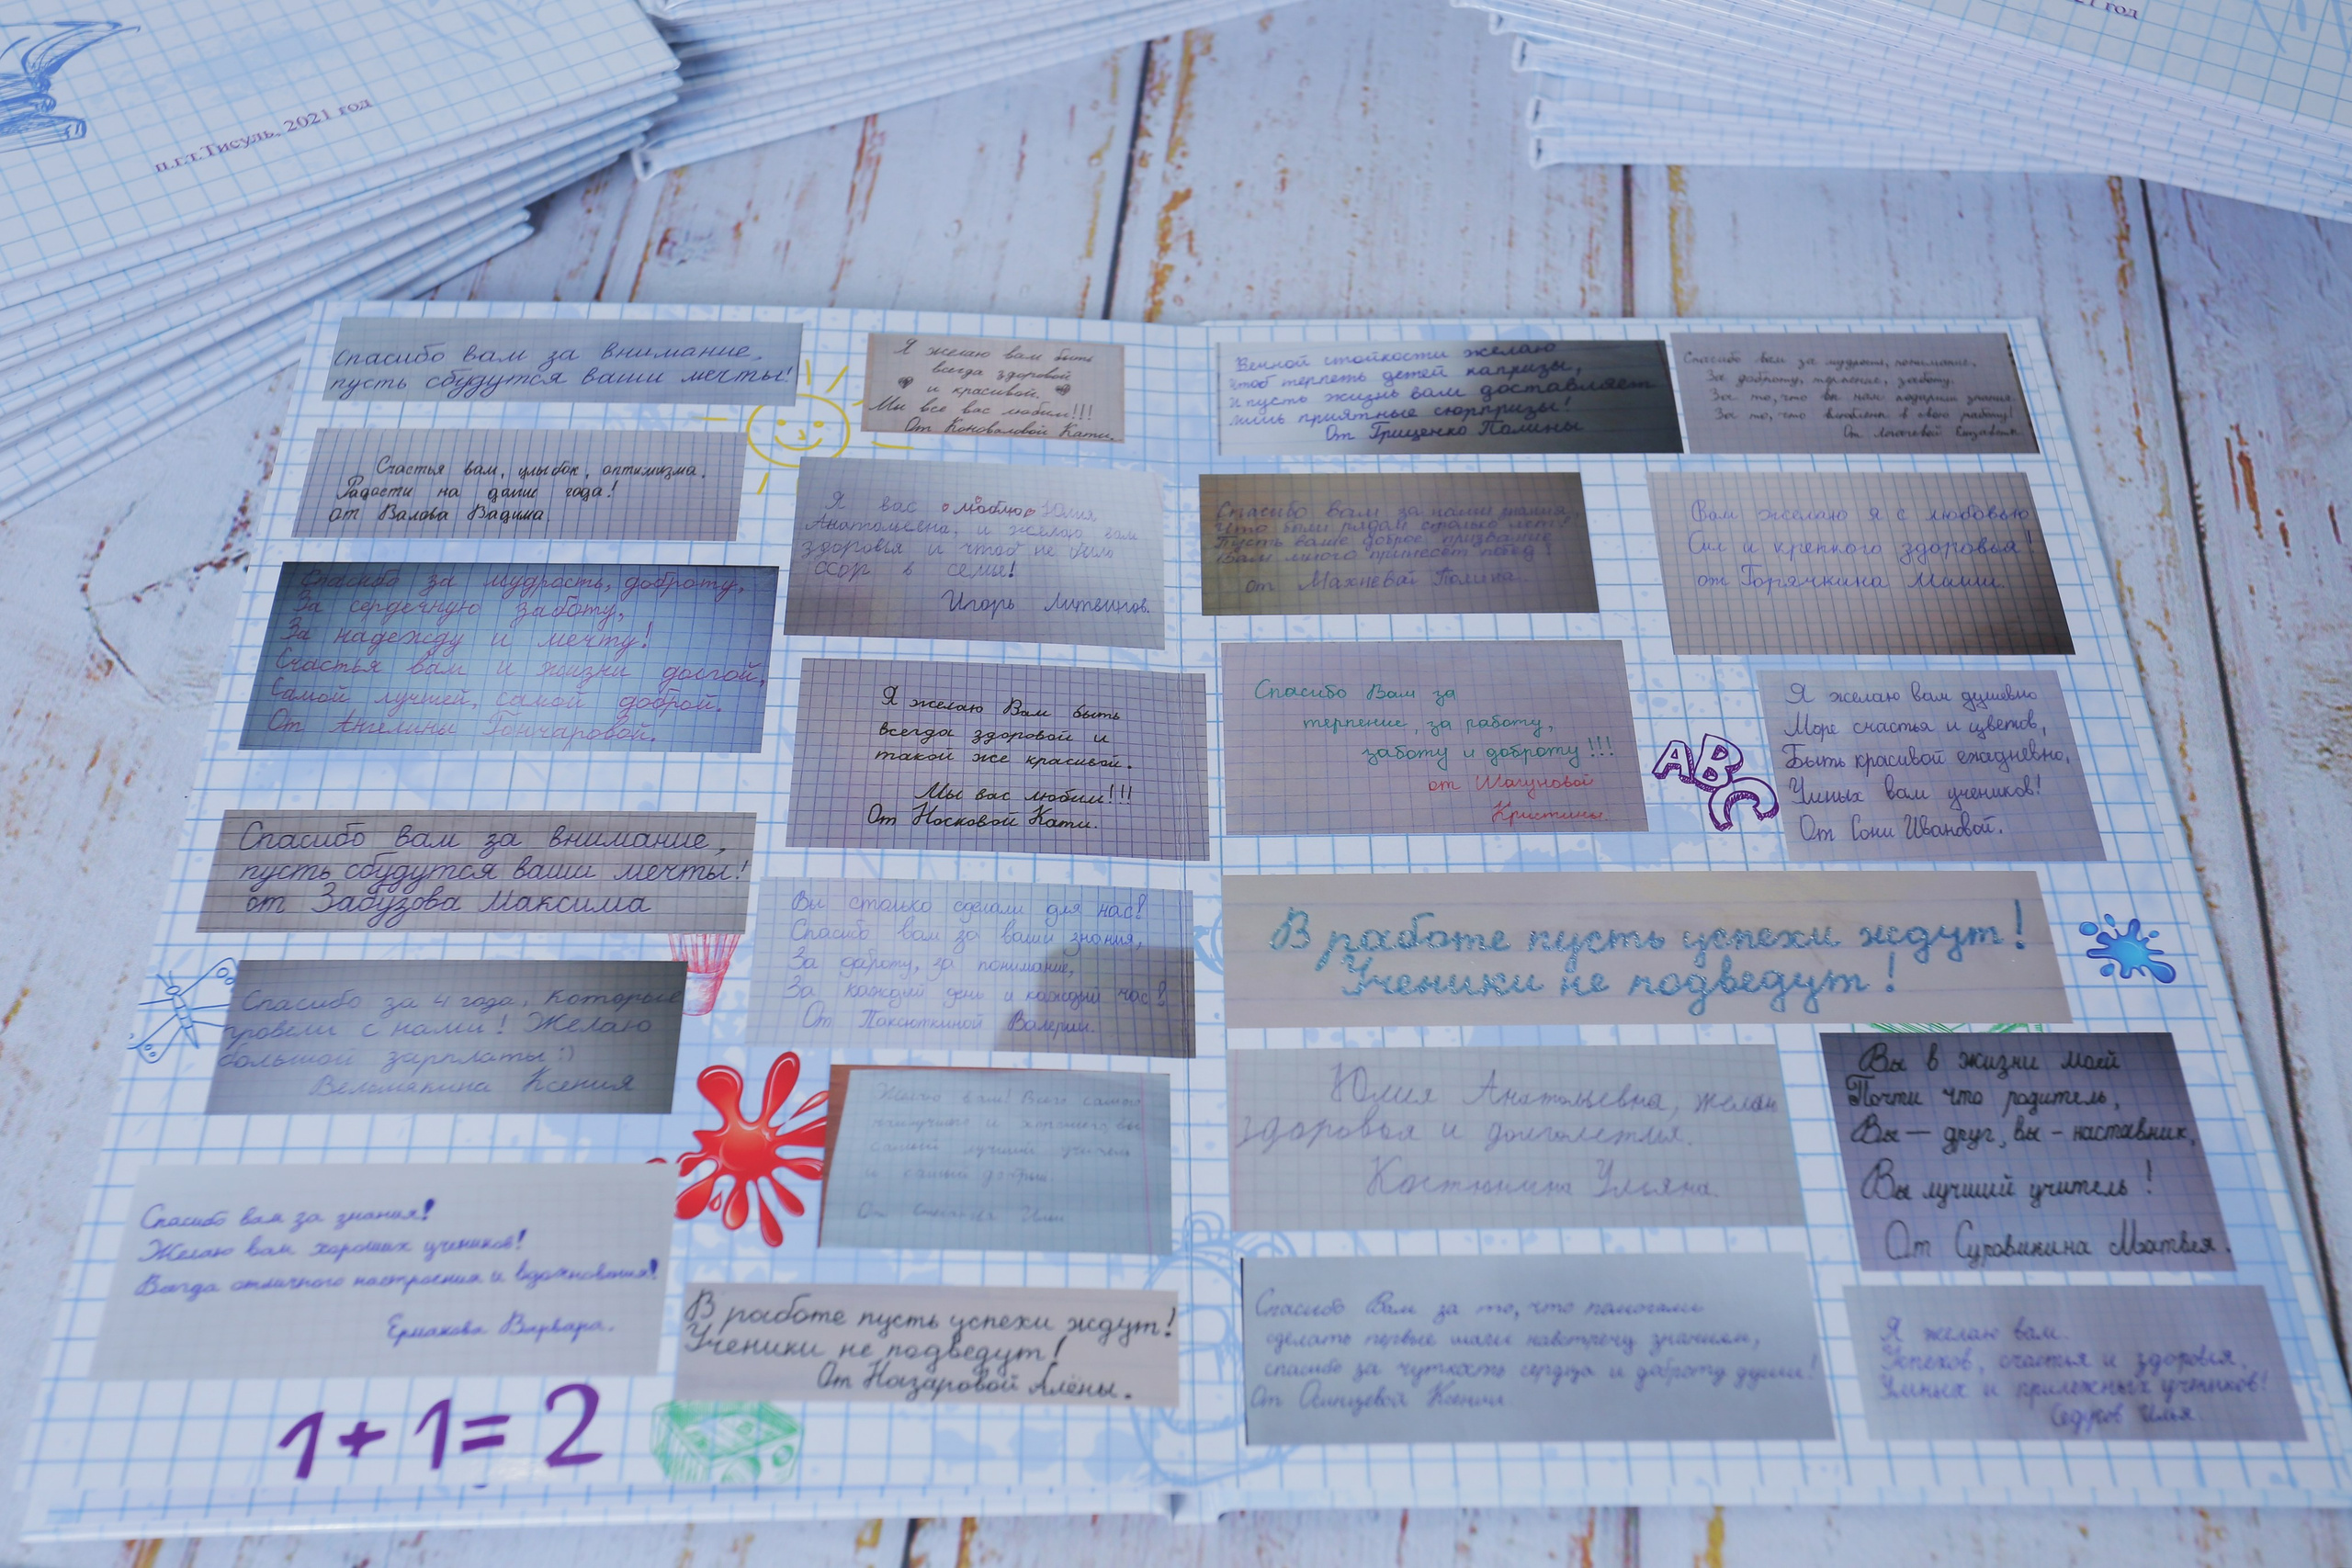 п.г.т.Тисуль, 2021 год
год
Спасибо вам за внимание,
пусть сбудутся ваши мечты!
Счастья вам, улыбок, оптимизма.
Радости на долгие года!
от Валова Вадима
Спасибо за мудрость, доброту,
За сердечную заботу,
За надежду и мечту!
Счастья вам и жизни долгой,
Самой лучшей, самой доброй.
От Ангелины Гончаровой.
Спасибо вам за внимание,
пусть сбудутся ваши мечты!
от Забузова Максима
Спасибо за 4 года, которые
провели с нами! Желаю
большой зарплаты :)
Вельмякина Ксения
Спасибо вам за знания!
Желаю вам хороших учеников!
Всегда отличного настроения и вдохновения!
Ермакова Варвара.
1+1=2
Я желаю вам быть
всегда здоровой
и красивой.
Мы все вас любим!!!
От Коноваловой Кати.
Я вас люблю Юлия
Анатольевна, и желаю вам
здоровья и чтоб не было
ссор в семье!
Игорь Литвинов.
Я желаю Вам быть
всегда здоровой и
такой же красивой.
Мы вас любим!!!
От Носковой Кати.
Вы столько сделали для нас!
Спасибо вам за ваши знания,
За доброту, за понимание,
За каждый день и каждый час!
От Паксюткиной Валерии.
Желаю вам! Всего самого
наилучшего и хорошего, вы
самый лучший учитель
и самый добрый.
От
В работе пусть успехи ждут!
Ученики не подведут!
От Назаровой Алёны.
Венной стойкости желаю
чтоб терпеть детей капризы,
и пусть жизнь вам доставляет
лишь приятные сюрпризы!
От Гриценко Полины
Спасибо вам за мудрость, понимание,
За доброту, терпение, заботу.
За то, что вы нам подарили знания.
За то, что влюблены в свою работу!
От
Спасибо вам за наши знания,
Что были рядом столько лет!
Пусть ваше доброе призвание
Вам много принесёт побед!
от Махневай Полина.
Вам желаю я с любовью
Сил и крепкого здоровья!
от Горячкина Миши.
Спасибо Вам за
терпение, за работу,
заботу и доброту!!!
от Шагуновой
Кристины.
ABC
Я желаю вам душевно
Море счастья и цветов,
Быть красивой ежедневно,
Умных вам учеников!
От Сони Ивановой.
В работе пусть успехи ждут!
Ученики не подведут!
Юлия Анатольевна, желаю
здоровья и долголетия.
Костюнина Ульяна.
Вы в жизни моей
Почти что родитель,
Вы — друг, вы - наставник,
Вы лучший учитель!
От Суровикина Матвея.
Спасибо Вам за то, что помогали
сделать первые шаги навстречу знаниям,
спасибо за чуткость сердца и доброту души!
От Осинцевой Ксении.
Я желаю вам.
Успехов, счастья и здоровья,
Умных и прилежных учеников!
Седусов Илья.